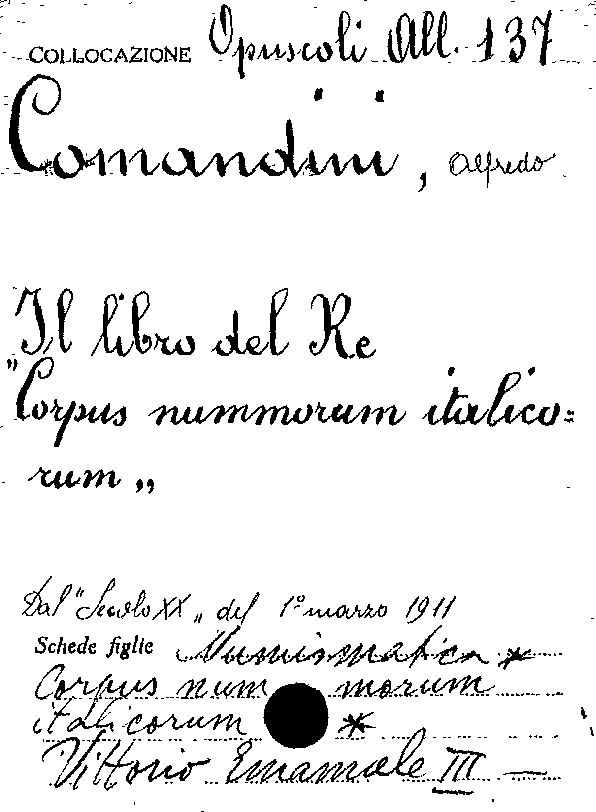 COLLOCAZIONE Opuscoli All. 137
Comandini, Alfredo
Il libro del Re
"Corpus nummorum italico=
rum„
Dal "Secolo XX„ del 1° marzo 1911
Schede figlie Numismatica *
Corpus nummorum
italicorum *
Vittorio Emanuele III —